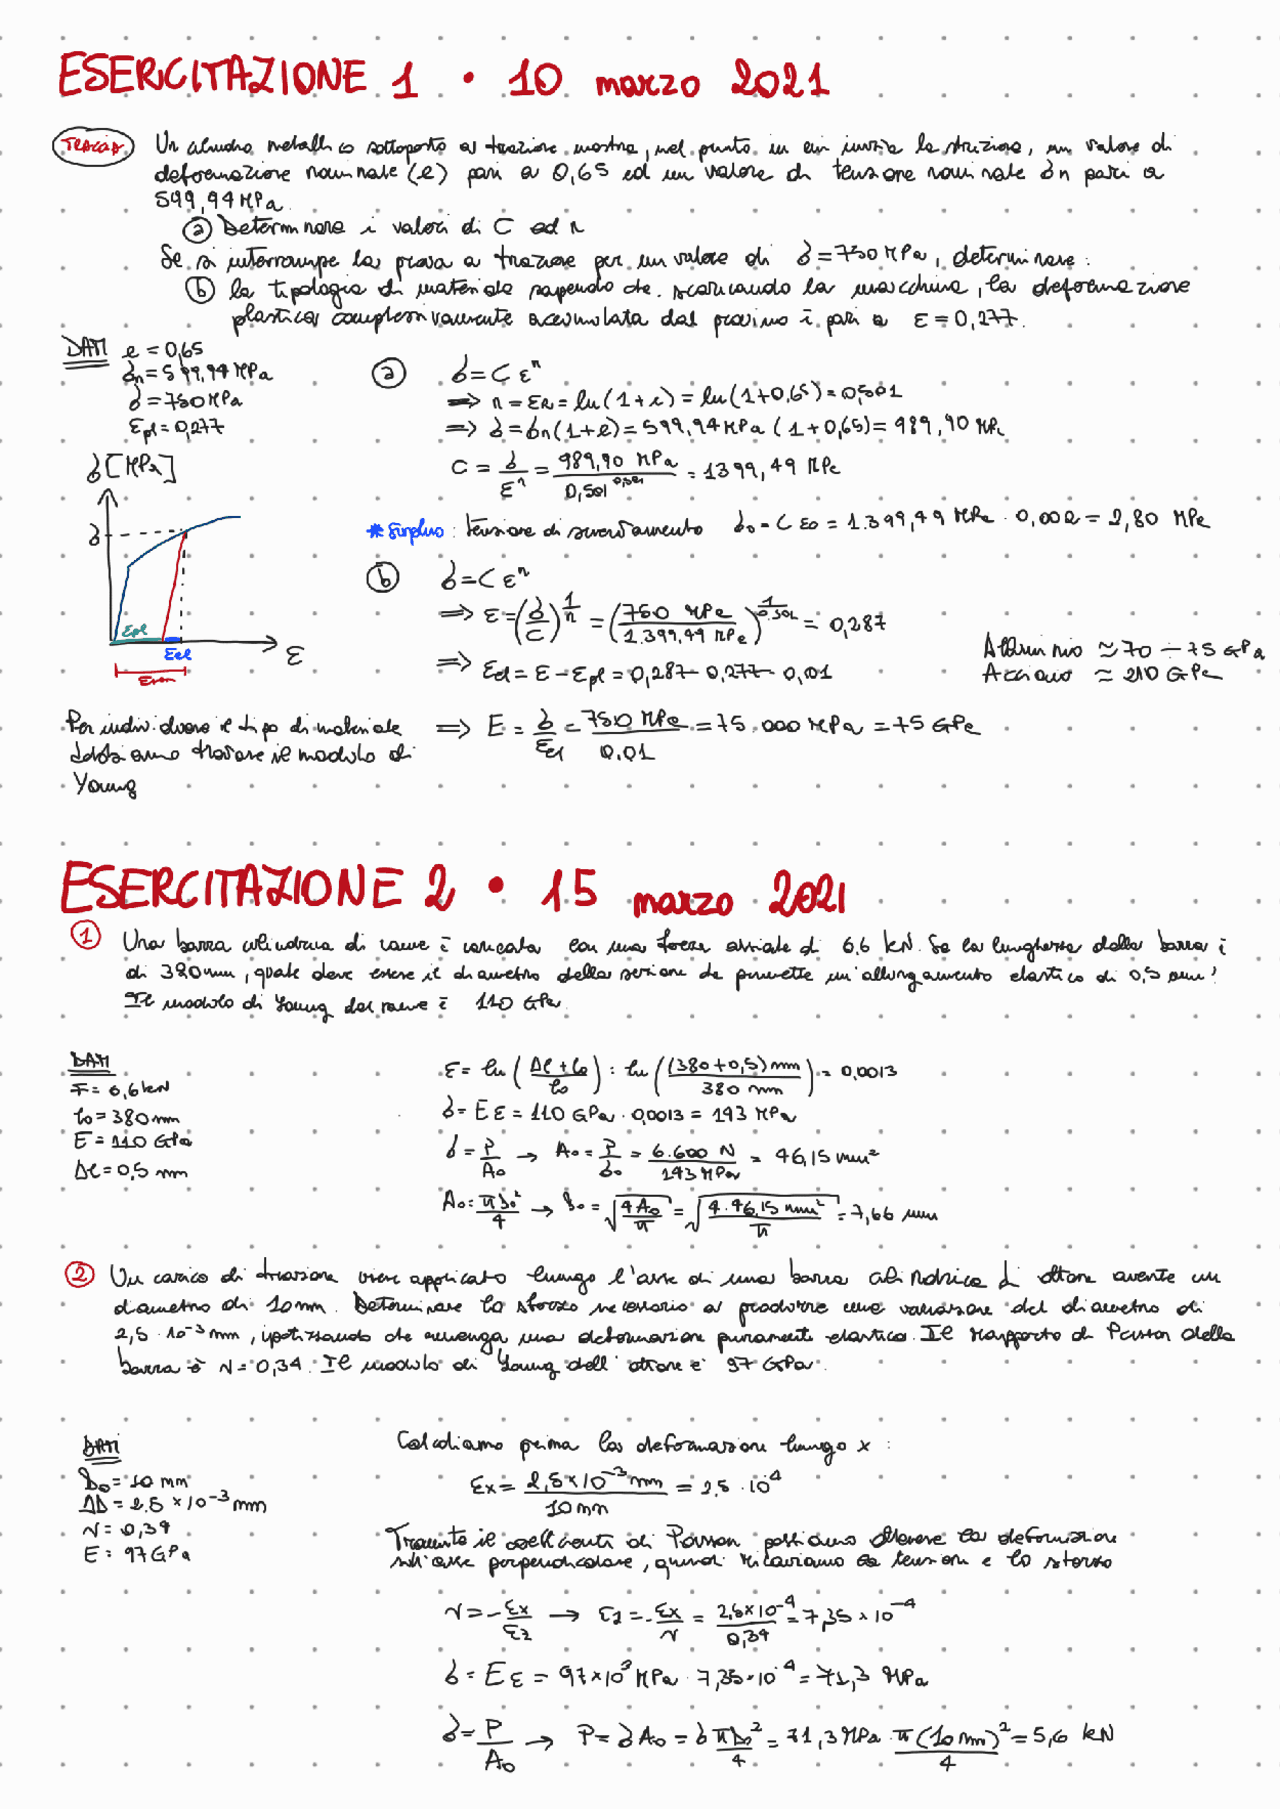 ESERCITAZIONE 1 • 10 marzo 2021
TRACCIA Un cilindro metallico sottoposto a trazione mostra, nel punto in cui inizia la strizione, un valore di
deformazione nominale (e) pari a 0,65 ed un valore di tensione nominale σn pari a
599,94 MPa.
a Determinare i valori di C ed n
Se si interrompe la prova a trazione per un valore di σ = 750 MPa, determinare:
b la tipologia di materiale sapendo che, scaricando la macchina, la deformazione
plastica complessivamente accumulata dal provino è pari a ε = 0,277.
DATI e = 0,65
σn = 599,94 MPa
σ = 750 MPa
εpl = 0,277
a σ = C εⁿ
⇒ n = εn = ln(1+e) = ln(1+0,65) = 0,501
⇒ σ = σn(1+e) = 599,94 MPa (1+0,65) = 989,90 MPa
C = σ/εⁿ = 989,90 MPa / 0,501^0,501 = 1399,49 MPa
σ [MPa]
σ
εpl
εel
ε
* Surplus: tensione di snervamento σ₀ = C ε₀ = 1.399,49 MPa · 0,002 = 2,80 MPa
b σ = C εⁿ
⇒ ε = (σ/C)^(1/n) = (750 MPa / 1.399,49 MPa)^(1/0.501) = 0,287
⇒ εel = ε − εpl = 0,287 − 0,277 = 0,01
Alluminio ≈ 70 ÷ 75 GPa
Acciaio ≈ 210 GPa
Per individuare il tipo di materiale
dobbiamo trovare il modulo di
Young
⇒ E = σ/εel = 750 MPa / 0.01 = 75.000 MPa = 75 GPa
ESERCITAZIONE 2 • 15 marzo 2021
1 Una barra cilindrica di rame è caricata con una forza assiale di 6,6 kN. Se la lunghezza della barra è
di 380 mm, quale deve essere il diametro della sezione che permette un'allungamento elastico di 0,5 mm?
Il modulo di Young del rame è 110 GPa.
DATI
F = 6,6 kN
l₀ = 380 mm
E = 110 GPa
Δl = 0,5 mm
ε = ln (Δl + l₀ / l₀) = ln ((380+0,5) mm / 380 mm) = 0,0013
σ = E ε = 110 GPa · 0,0013 = 143 MPa
σ = P/A₀ → A₀ = P/σ₀ = 6.600 N / 143 MPa = 46,15 mm²
A₀ = πD₀²/4 → D₀ = √(4A₀/π) = √(4·46,15 mm²/π) = 7,66 mm
2 Un carico di trazione viene applicato lungo l'asse di una barra cilindrica di ottone avente un
diametro di 10 mm. Determinare lo sforzo necessario a produrre una variazione del diametro di
2,5 · 10⁻³ mm, ipotizzando che avvenga una deformazione puramente elastica. Il rapporto di Poisson della
barra è ν = 0,34. Il modulo di Young dell'ottone è 97 GPa.
DATI
D₀ = 10 mm
ΔD = 2.5 × 10⁻³ mm
ν = 0,34
E = 97 GPa
Calcoliamo prima la deformazione lungo x:
εx = 2,5 × 10⁻³ mm / 10 mm = 2,5 · 10⁻⁴
Tramite il coefficiente di Poisson possiamo ottenere la deformazione
sull'asse perpendicolare, quindi ricaviamo la tensione e lo sforzo
ν = −εx/εz → εz = −εx/ν = 2,5×10⁻⁴ / 0,34 = 7,35 × 10⁻⁴
σ = E ε = 97×10³ MPa · 7,35·10⁻⁴ = 71,3 MPa
σ = P/A₀ → P = σ A₀ = σ πD₀²/4 = 71,3 MPa · π(10 mm)²/4 = 5,6 kN